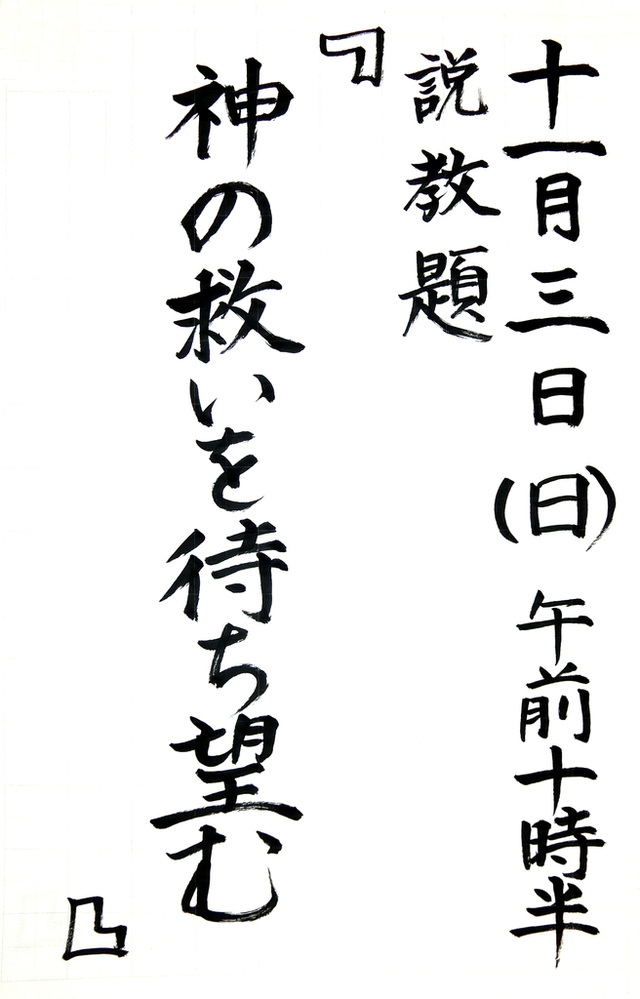 十一月三日(日) 午前十時半
説教題
『神の救いを待ち望む』